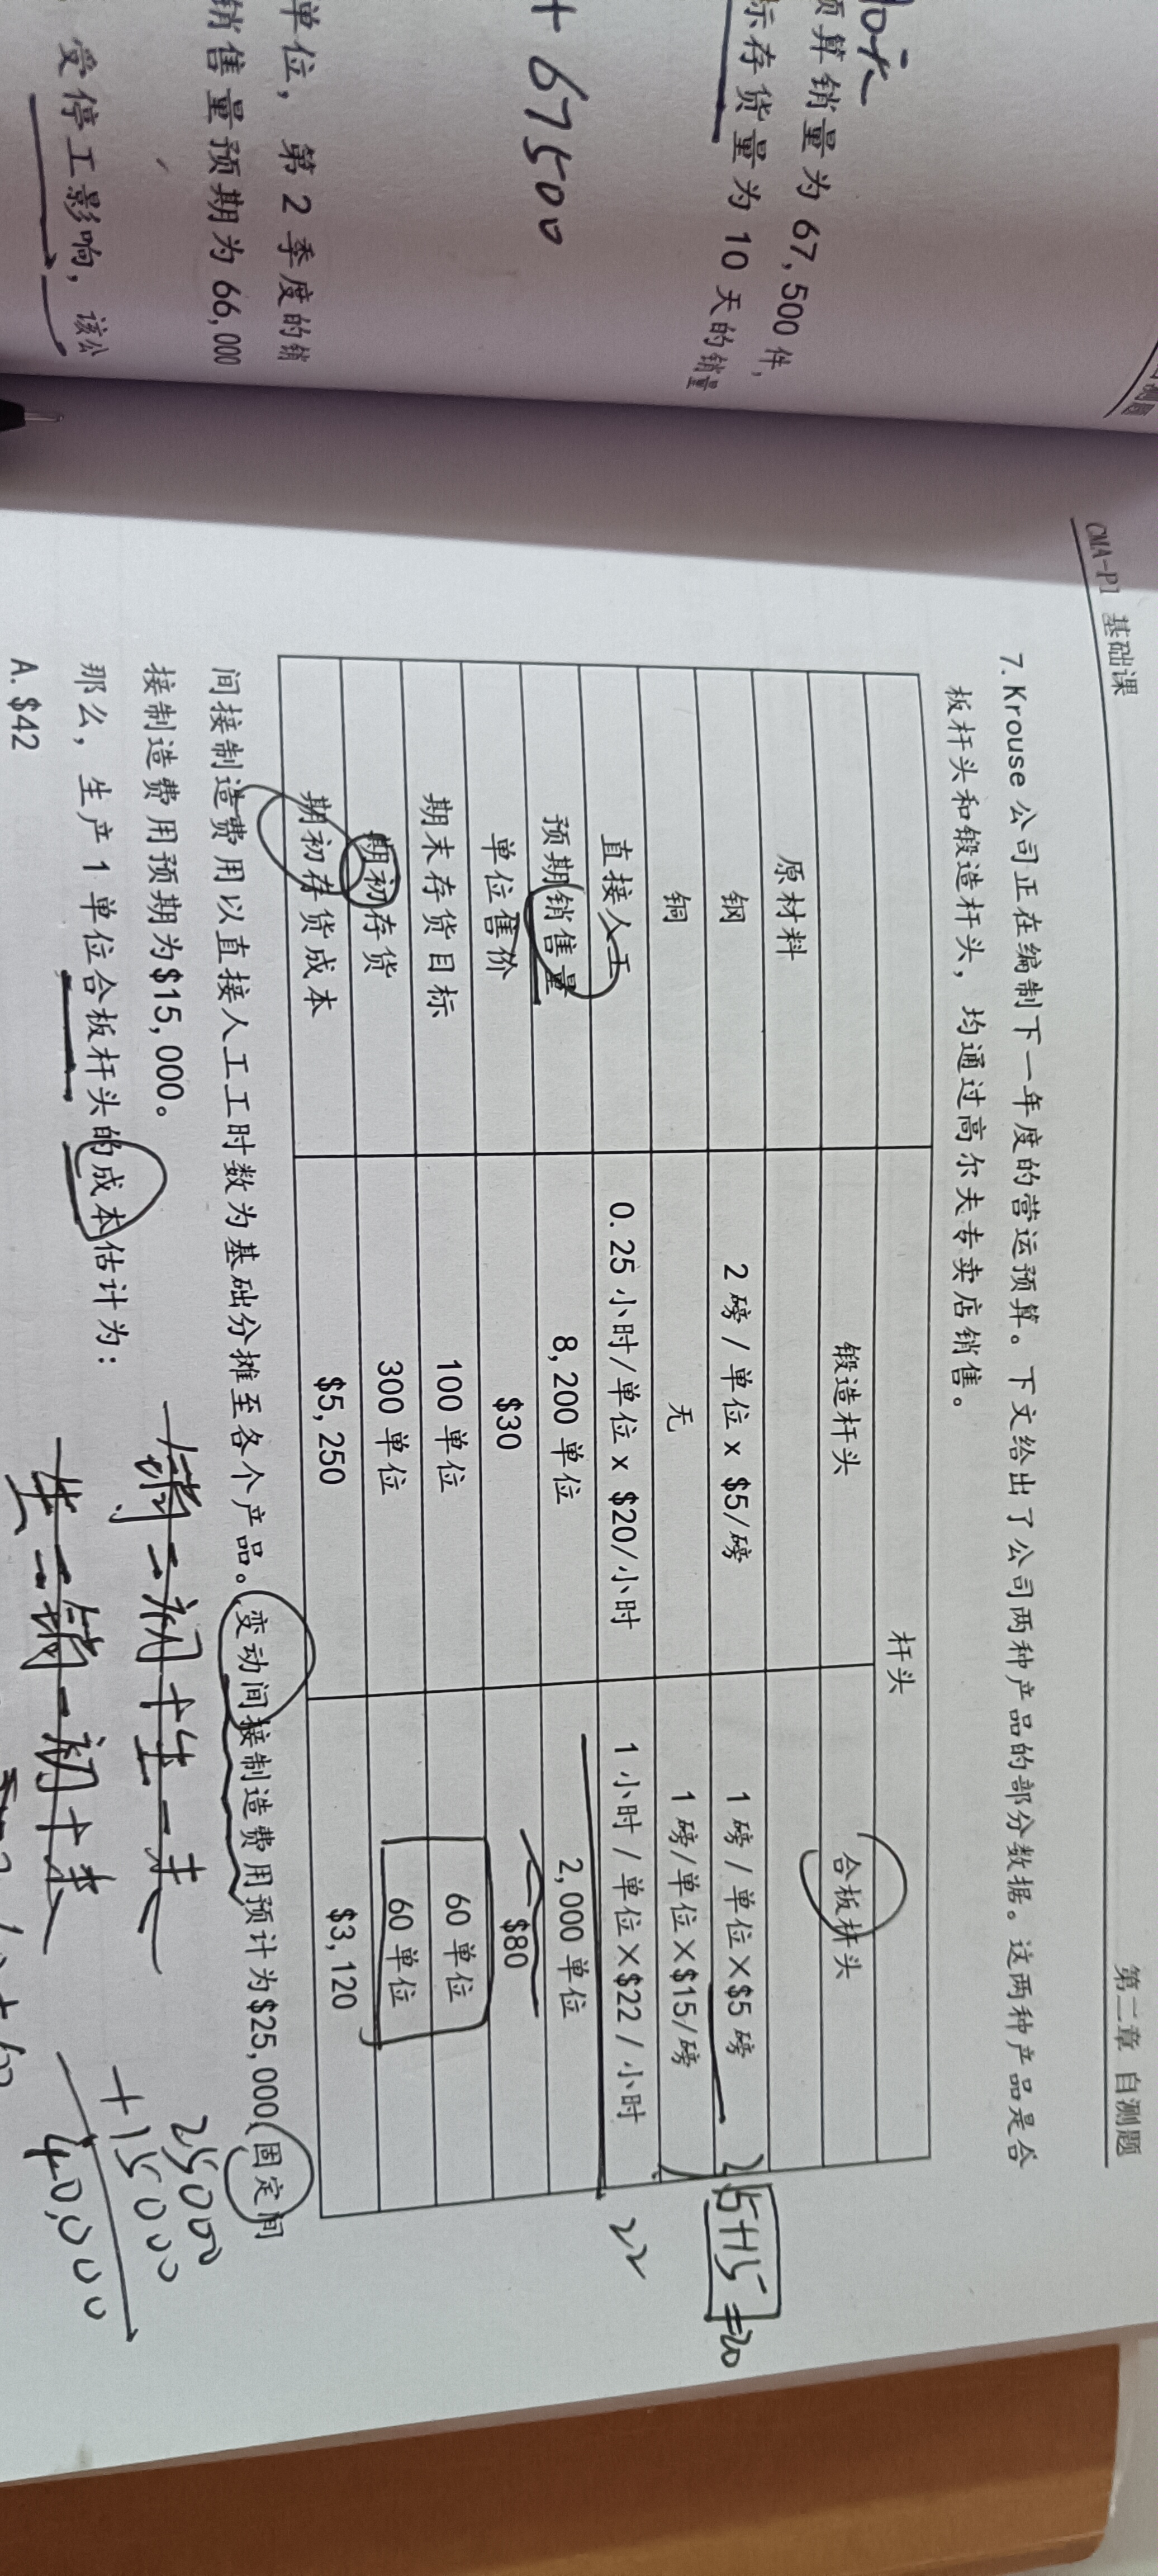 10天
算销量为 67,500 件,
标存货量为 10 天的销量
+ 67500
单位, 第 2 季度的销
销售量预期为 66,000
受停工影响, 该公
CMA-P1 基础课
第二章 自测题
7. Krouse 公司正在编制下一年度的营运预算。下文给出了公司两种产品的部分数据。这两种产品是合
板杆头和锻造杆头, 均通过高尔夫专卖店销售。
杆头
锻造杆头 合板杆头
原材料
钢 2 磅/单位 x $5/磅 1 磅/单位×$5 磅
5+15 =20
铜 无 1 磅/单位×$15/磅
直接人工 0.25 小时/单位 x $20/小时 1 小时/单位×$22/小时
22
预期销售量 8,200 单位 2,000 单位
单位售价 $30 $80
期末存货目标 100 单位 60 单位
期初存货 300 单位 60 单位
期初存货成本 $5,250 $3,120
间接制造费用以直接人工工时数为基础分摊至各个产品。变动间接制造费用预计为$25,000,固定间
接制造费用预期为$15,000。
那么, 生产 1 单位合板杆头的成本估计为:
销=初+生-末
生=销-初+末
25000
+15000
40,000
A. $42